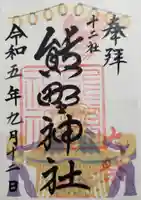 奉拝
十二社
熊野神社
令和五年九月十二日